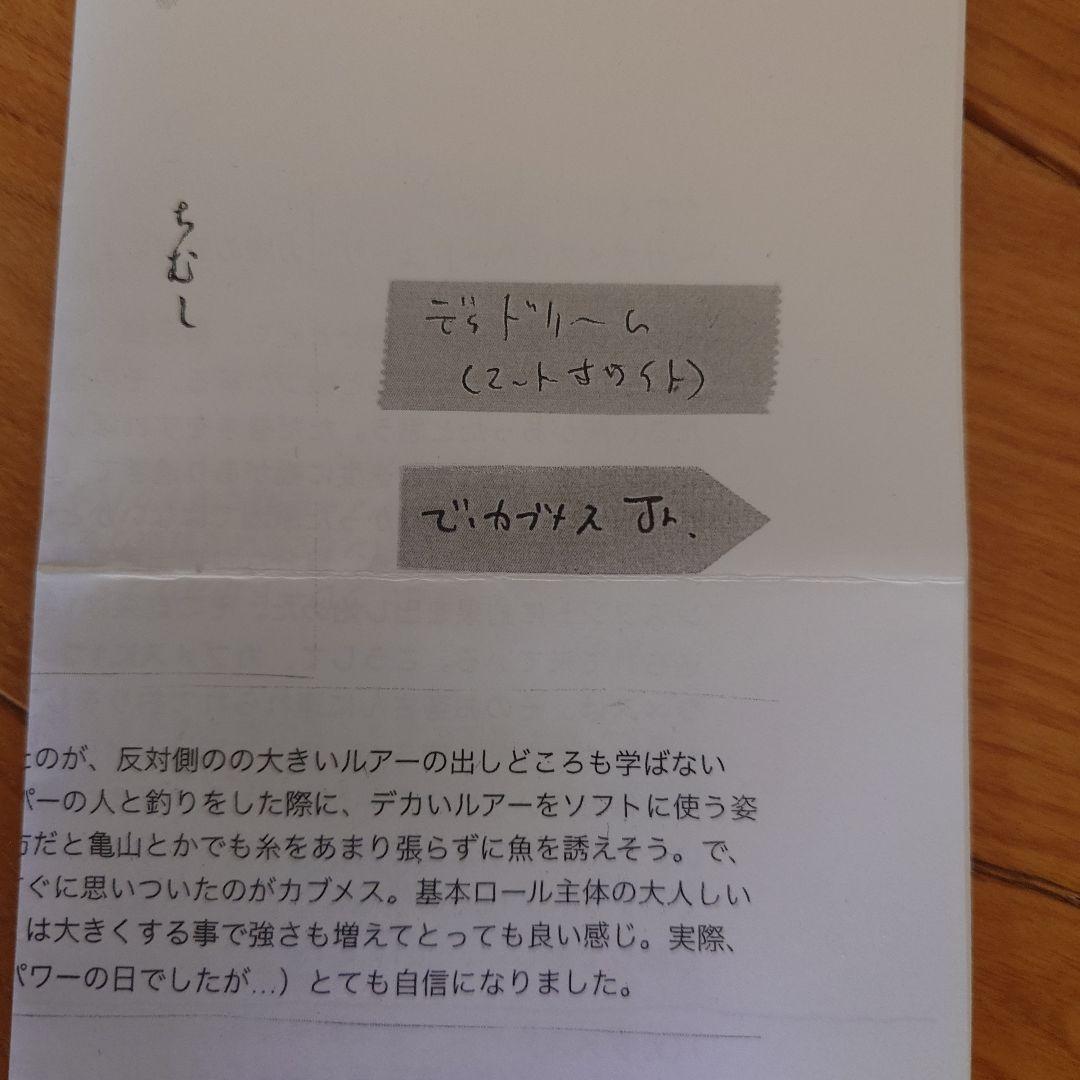 ちむし
デイドリーム
(マットホワイト)
でぃカブメス Jr.
のが、反対側のの大きいルアーの出しどころも学ばない
パーの人と釣りをした際に、デカいルアーをソフトに使う姿
だと亀山とかでも糸をあまり張らずに魚を誘えそう。で、
ぐに思いついたのがカブメス。基本ロール主体の大人しい
は大きくする事で強さも増えてとっても良い感じ。実際、
パワーの日でしたが…）とても自信になりました。